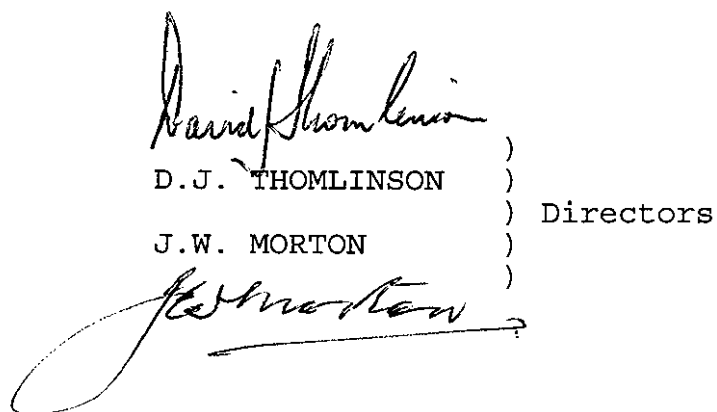 David J Thomlinson
D.J. THOMLINSON )
) Directors
J.W. MORTON )
JWMorton